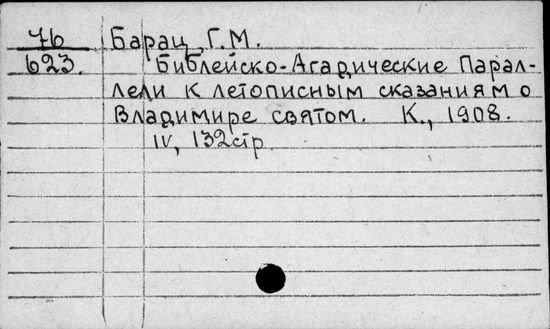 76 Барац, Г.М.
623. Библейско-Агадические Парал-
лели к летописным сказаниям о
Владимире святом. К., 1908.
IV, 132стр.